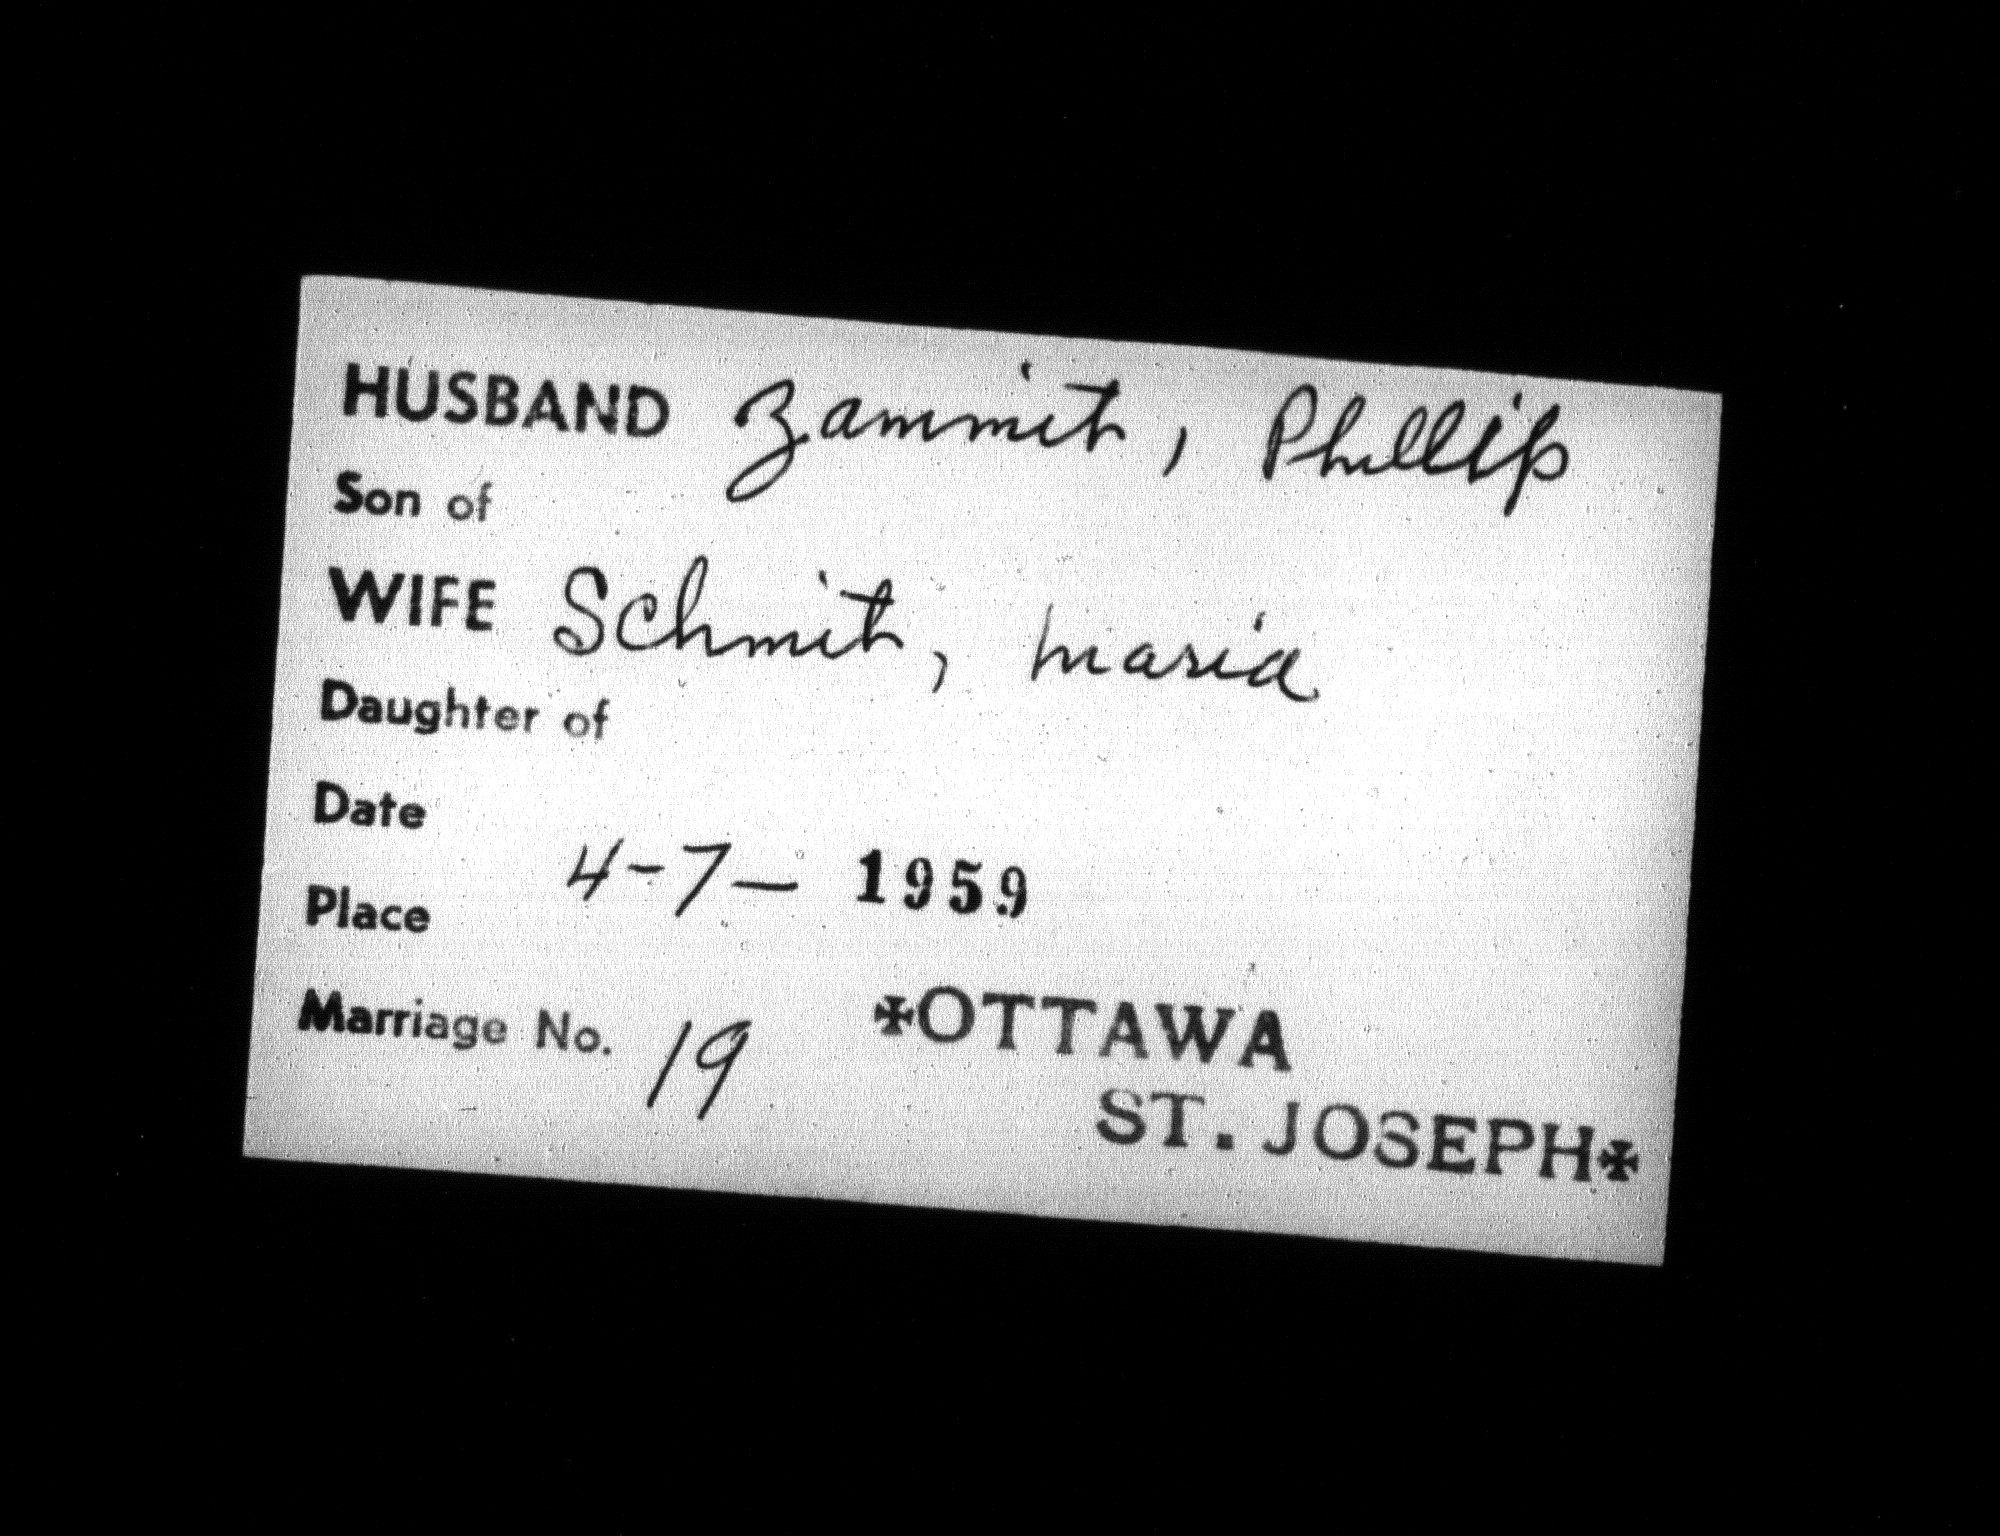 HUSBAND Zammit, Phillip
Son of
WIFE Schmit, Maria
Daughter of
Date
4-7- 1959
Place
✠OTTAWA
Marriage No. 19
ST. JOSEPH✠